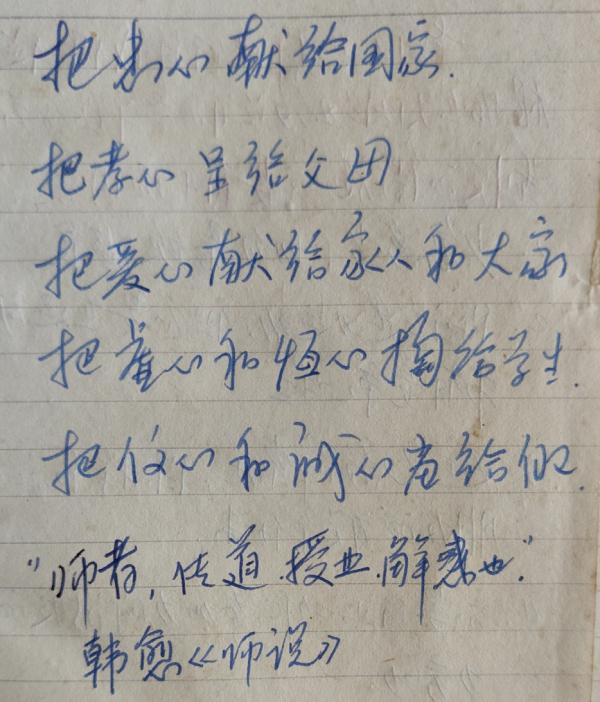 把忠心献给国家.
把孝心呈给父母
把爱心献给家人和大家
把童心和恒心掏给学生.
把信心和诚心留给自己.
"师者,传道.授业.解惑也."
韩愈《师说》